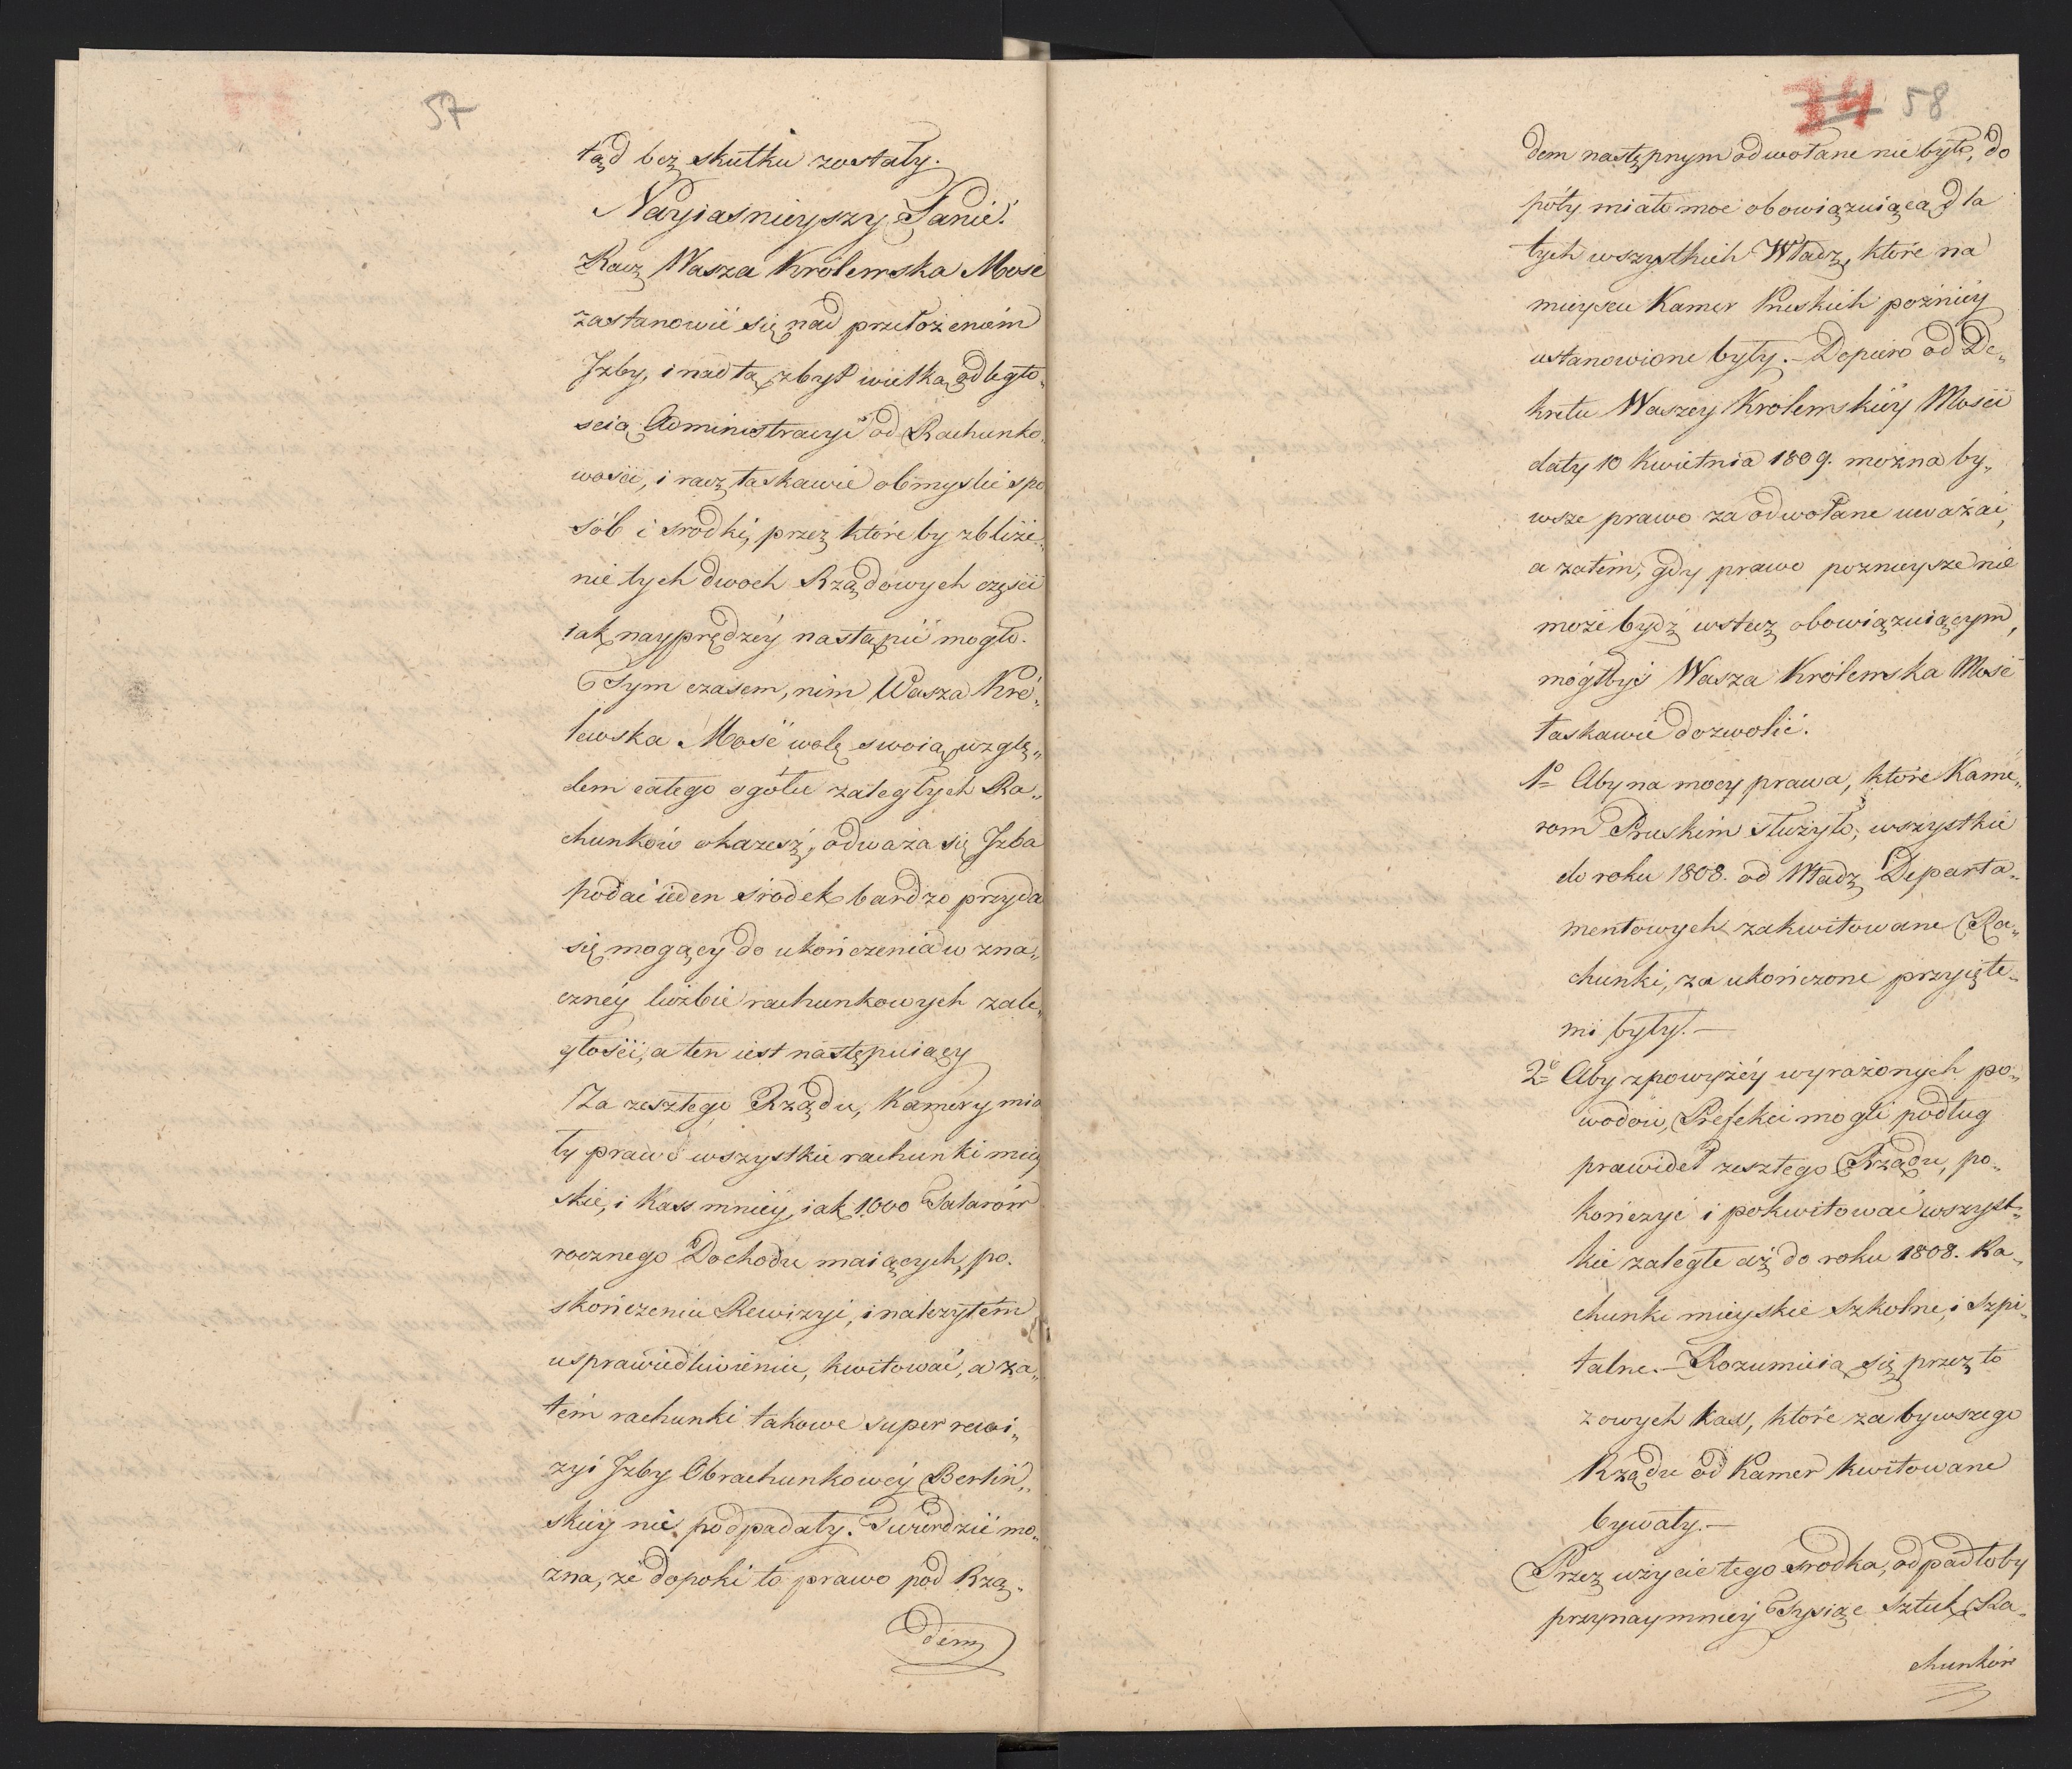 57
tąd bez skutku zostały.
Nayiasnieyszy Panie!
Racz Wasza Królewska Mosc
zastanowić się nad przełożeniem
Izby, i nad tą zbyt wielką odległo„
scią Administracyi od Rachunko„
wości, i racz łaskawie obmyslić spo
sób i srodki, przez które by zbliże„
nie tych dwoch Rządowych części
iak nayprędzéy nastąpić mogło.
Tym czasem, nim Wasza Kró„
lewska Mość wolę swoią wzglę„
dem całego ogółu zaległych Ra„
chunków okazesz, odważa się Izba
podać ieden srodek bardzo przyda
się mogący do ukończenia w zna„
cznéy liczbie rachunkowych zale„
głości, a ten iest następuiący
Za zeszłego Rządu, Kamery mia
ły prawo wszystkie rachunki miey
skie, i Kass mniéy, iak 1000 Talarów
rocznego Dochodu maiących, po
skończeniu Rewizyi, i należytém
usprawiedliwieniu, kwitować, a za„
tém rachunki takowe super rewi„
zyi Izby Obrachunkowéy Berliń„
skiéy nie podpadały. Twierdzić mo„
żna, że dopoki to prawo pod Rzą„
dem
34 58
dem następnym odwołane nie było, do
poty miało moc obowiązuiącą dla
tych wszystkich Władz, które na
mieyscu Kamer Pruskich poźniéy
ustanowione były. – Dopiero od De„
kretu Waszey Krolewskiéy Mości
daty 10 Kwietnia 1809. można by„
wsze prawo za odwołane uważać,
a zatém, gdy prawo poznieysze nie
może bydź wstecz obowiązuiącym,
mógłbyś Wasza Królewska Mość
łaskawie dozwolić.
1o Aby na mocy prawa, które Kame„
rom Pruskim służyło, wszystkie
do roku 1808. od Władz Departa„
mentowych zakwitowane Ra„
chunki, za ukończone przyięte„
mi były. –
2o Aby z powyżéy wyrażonych po„
wodów, Prefekci mogli podług
prawideł zeszłego Rządu, po„
kończyć i pokwitować wszyst„
kie zaległe aż do roku 1808. Ra„
chunki mieyskie szkolne, i Szpi„
talne. – Rozumieią się przez to
z owych Kass, które za bywszego
Rządu od Kamer kwitowane
bywały. –
Przez użycie tego srodka, odpadłoby
przynaymniéy Tysiąc Sztuk Ra„
chunków